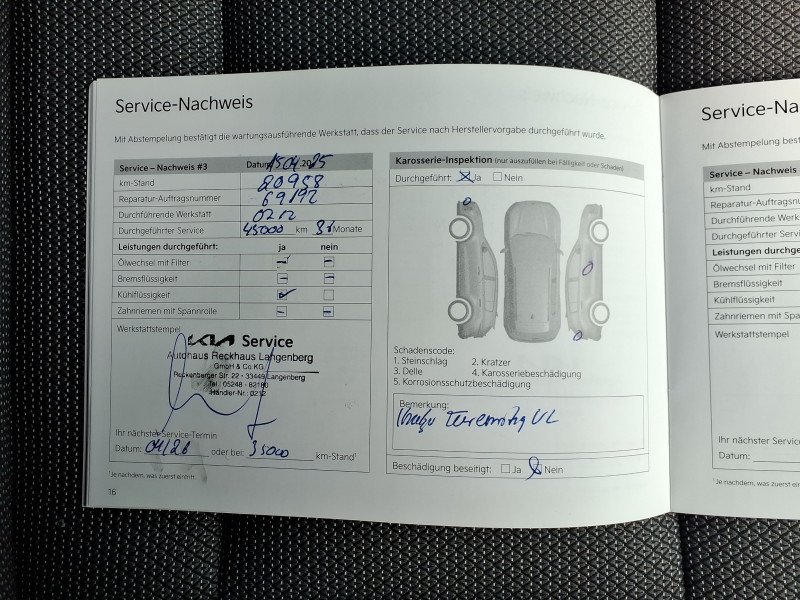 Service-Nachweis
Mit Abstempelung bestätigt die wartungsausführende Werkstatt, dass der Service nach Herstellervorgabe durchgeführt wurde.
Service – Nachweis #3 Datum 15.04.2025
km-Stand 20958
Reparatur-Auftragsnummer 69192
Durchführende Werkstatt
Durchgeführter Service 45000 km Monate
Leistungen durchgeführt: ja nein
Ölwechsel mit Filter
Bremsflüssigkeit
Kühlflüssigkeit
Zahnriemen mit Spannrolle
Werkstattstempel
KIA Service
Autohaus Reckhaus Langenberg
GmbH & Co.KG
Reckenberger Str. 22 - 33449 Langenberg
Tel.: 05248 - 82180
Händler-Nr.: 0212
Ihr nächster Service-Termin
Datum: 04/26 oder bei: 35000 km-Stand¹
¹Je nachdem, was zuerst eintritt.
16
Karosserie-Inspektion (nur auszufüllen bei Fälligkeit oder Schäden)
Durchgeführt: Ja Nein
Schadenscode:
1. Steinschlag 2. Kratzer
3. Delle 4. Karosseriebeschädigung
5. Korrosionsschutzbeschädigung
Bemerkung:
VL
Beschädigung beseitigt: Ja Nein
Service-Na
Mit Abstempelung bestä
Service – Nachweis
km-Stand
Reparatur-Auftragsnum
Durchführende Werkstatt
Durchgeführter Servic
Leistungen durchgefüh
Ölwechsel mit Filter
Bremsflüssigkeit
Kühlflüssigkeit
Zahnriemen mit Spann
Werkstattstempel
Ihr nächster Service
Datum:
¹Je nachdem, was zuerst